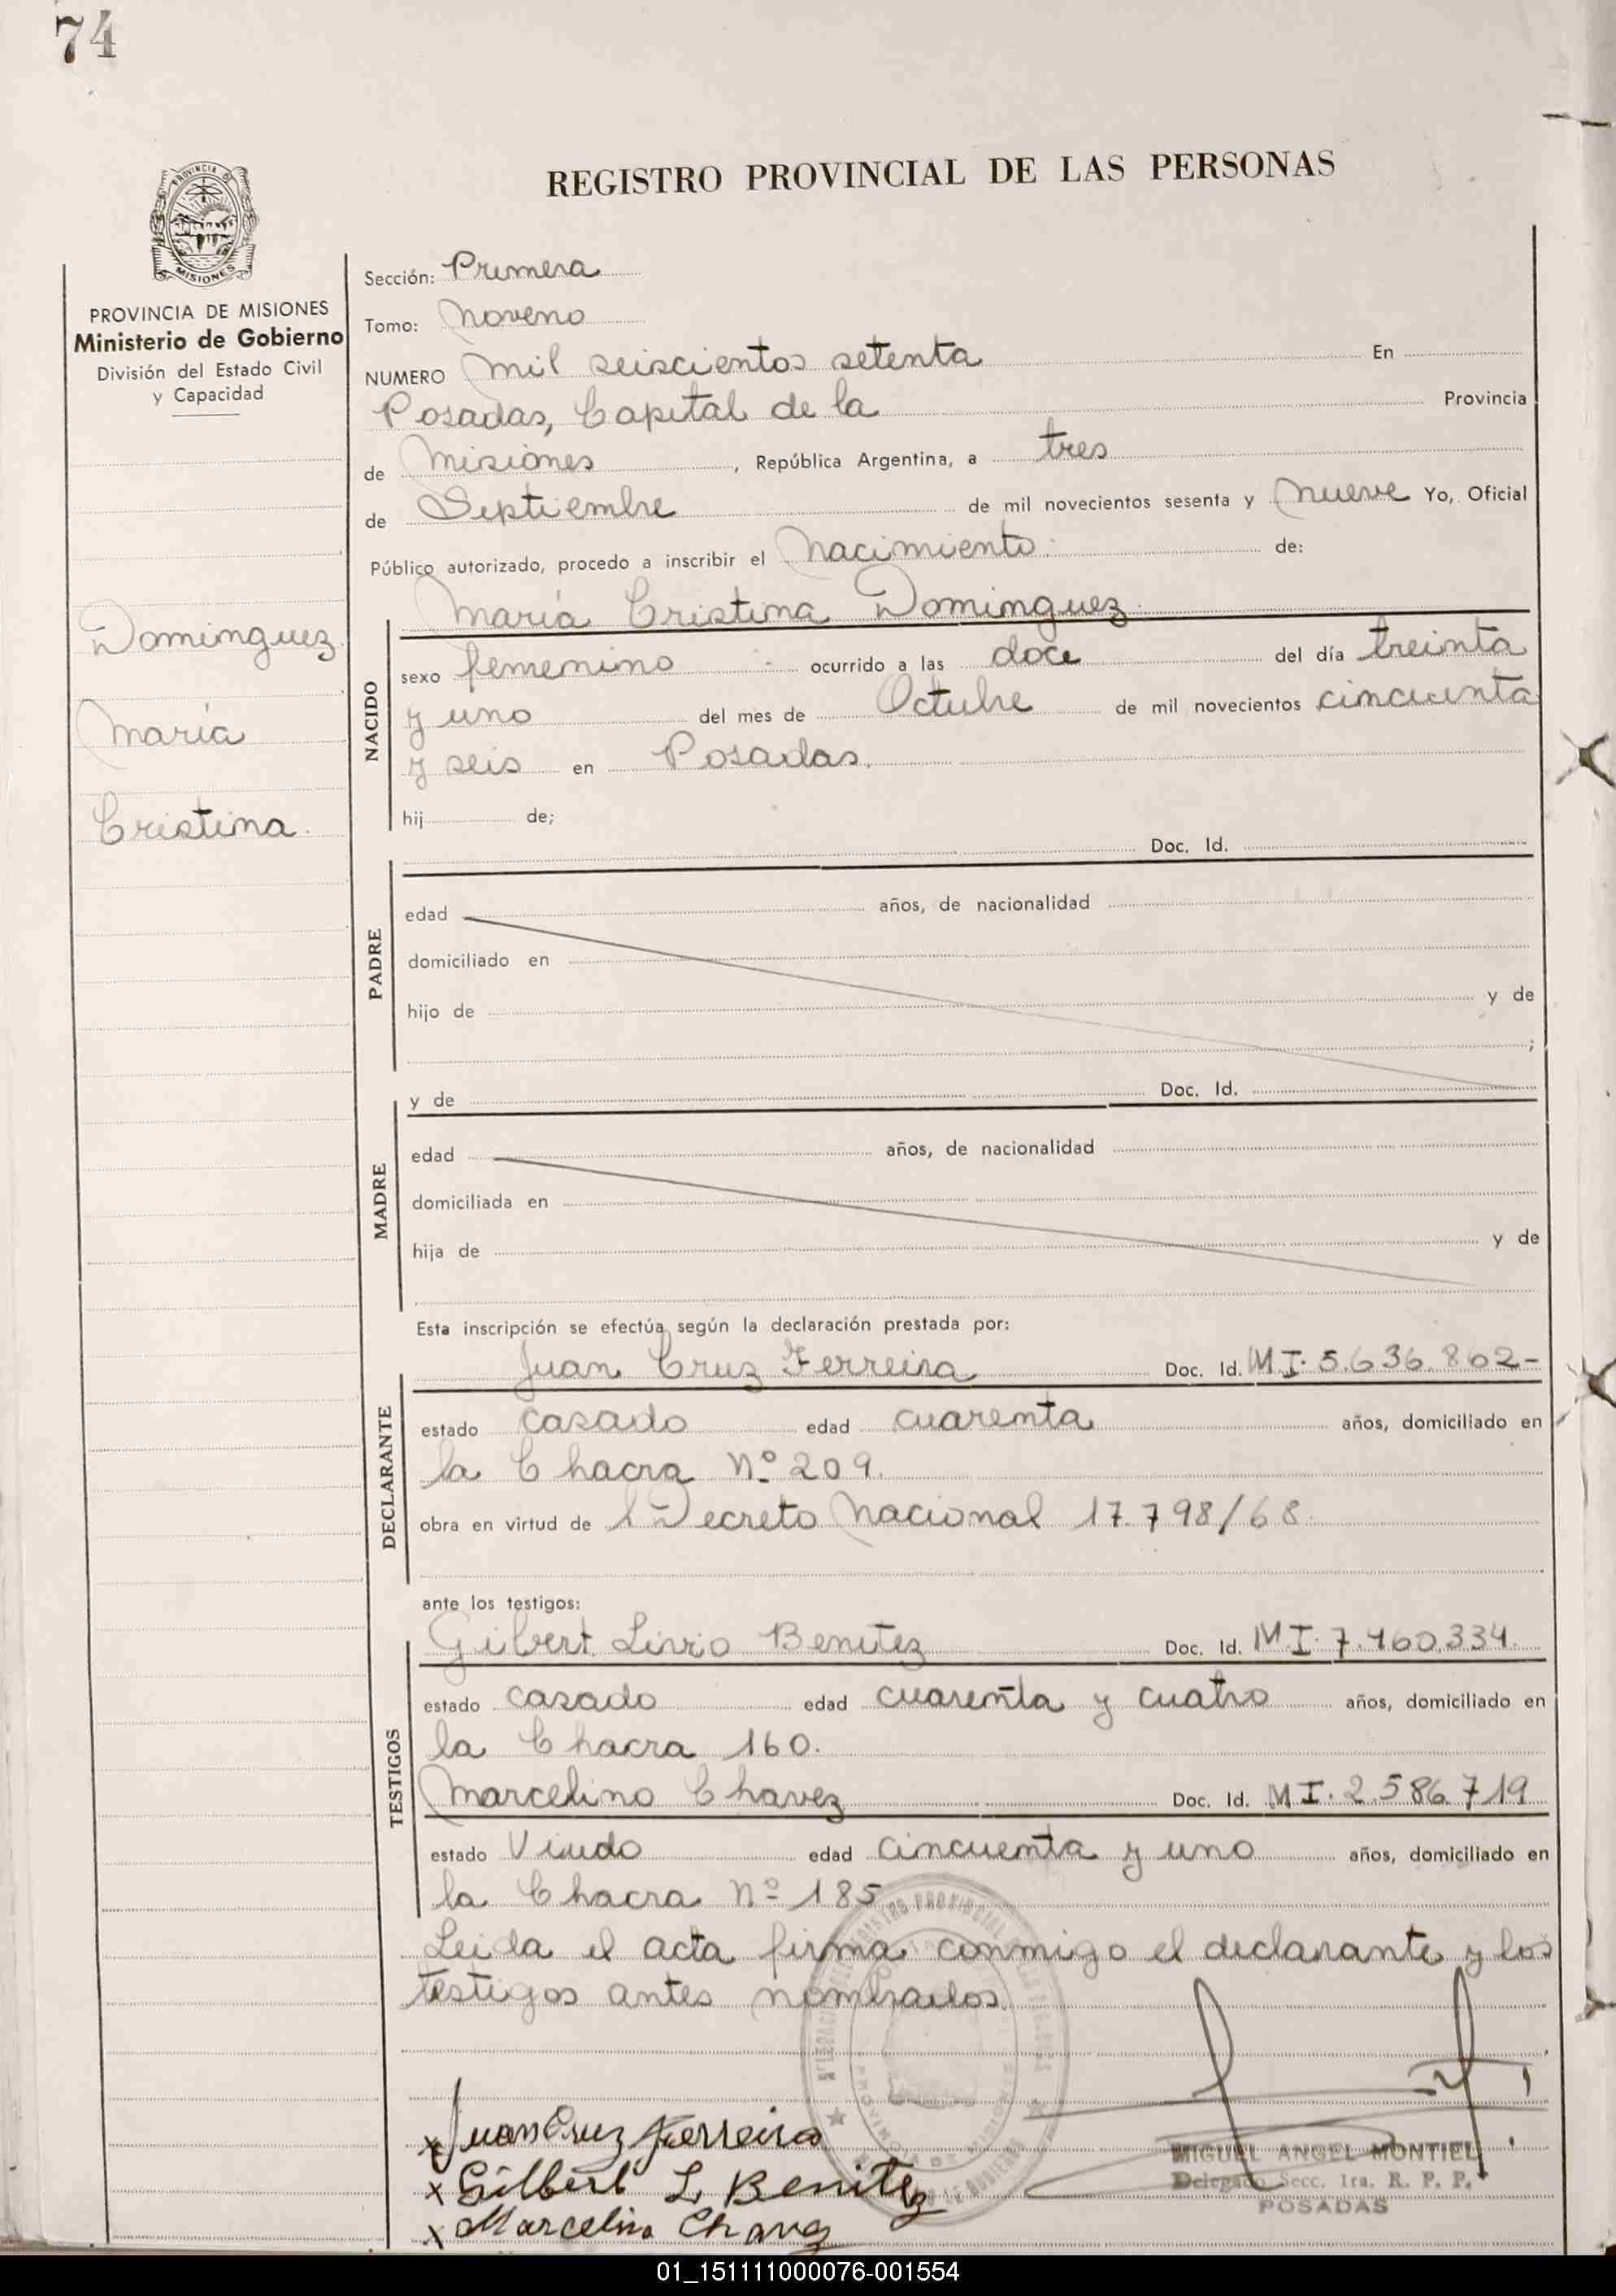 74
REGISTRO PROVINCIAL DE LAS PERSONAS
PROVINCIA DE
MISIONES
PROVINCIA DE MISIONES
Ministerio de Gobierno
División del Estado Civil
y Capacidad
Dominguez
María
Cristina.
Sección: Primera
Tomo: Noveno
NUMERO Mil seiscientos setenta En
Posadas, Capital de la Provincia
de Misiones, República Argentina, a tres
de Septiembre de mil novecientos sesenta y nueve Yo, Oficial
Público autorizado, procedo a inscribir el Nacimiento: de:
María Cristina Dominguez.
NACIDO
sexo femenino ocurrido a las doce del día treinta
y uno del mes de Octubre de mil novecientos cincuenta
y seis en Posadas.
hij de;
Doc. Id.
PADRE
edad años, de nacionalidad
domiciliado en
hijo de y de
;
y de Doc. Id.
MADRE
edad años, de nacionalidad
domiciliada en
hija de y de
Esta inscripción se efectúa según la declaración prestada por:
Juan Cruz Ferreira Doc. Id. M I. 5.636.862-
DECLARANTE
estado casado edad cuarenta años, domiciliado en
la Chacra Nº 209.
obra en virtud de l Decreto Nacional 17.798/68.
ante los testigos:
Gilbert Livio Benitez Doc. Id. M.I. 7.460.334.
TESTIGOS
estado casado edad cuarenta y cuatro años, domiciliado en
la Chacra 160.
Marcelino Chavez Doc. Id. M I. 2.586.719
estado Viudo edad cincuenta y uno años, domiciliado en
la Chacra Nº 185
Leida el acta firma conmigo el declarante y los
testigos antes nombrados.
x Juan Cruz Ferreira
x Gilbert L Benitez
x Marcelino Chavez
MIGUEL ANGEL MONTIEL
Delegado Secc. 1ra. R. P. P.
POSADAS
01_151111000076-001554